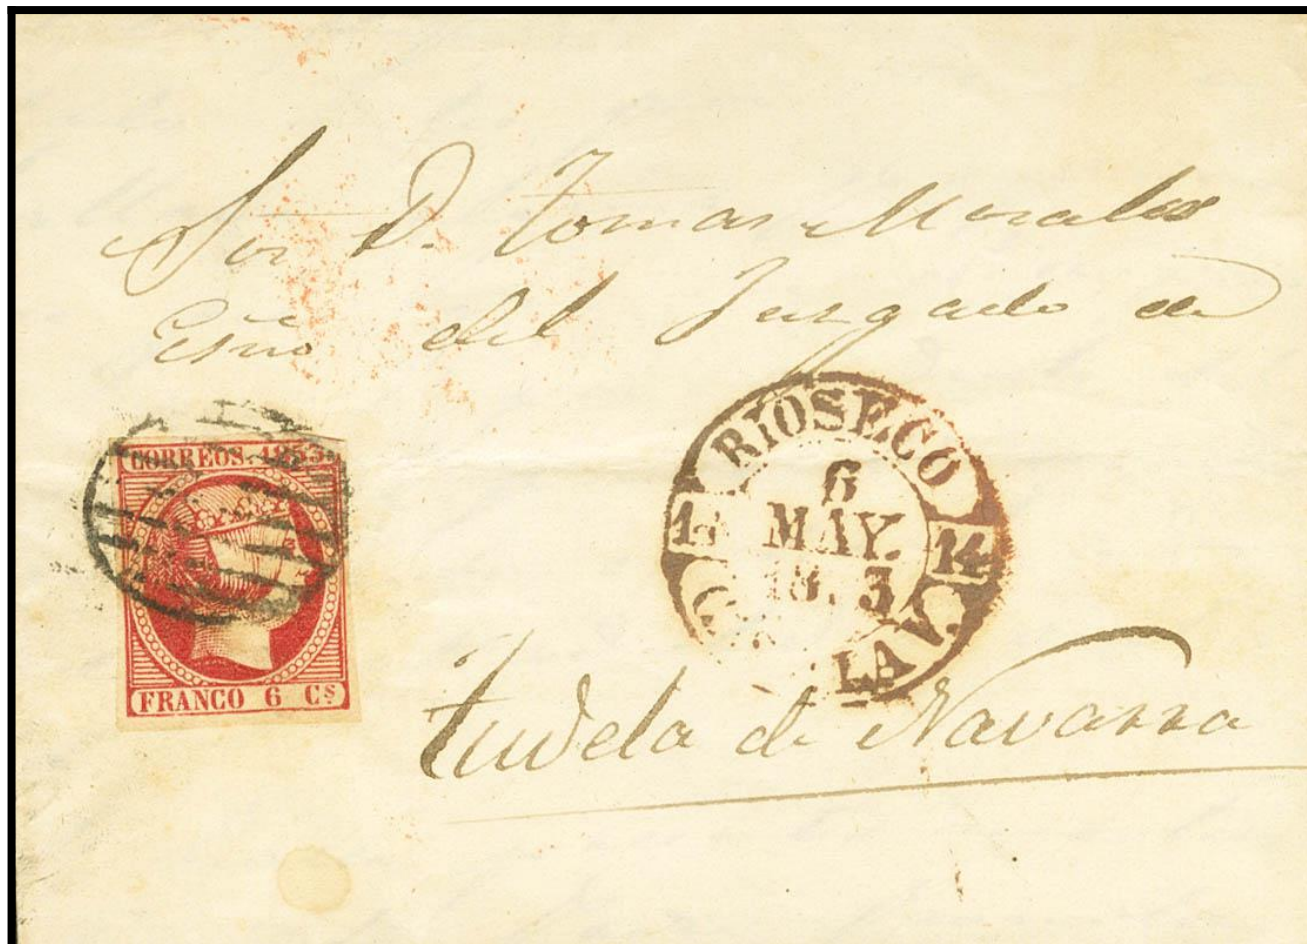 Sor D. Tomas Morales
Esno del Juzgado de
CORREOS. 1853.
FRANCO 6 Cs
RIOSECO
6
MAY.
18 3
14
LA V.
Tudela de Navarra